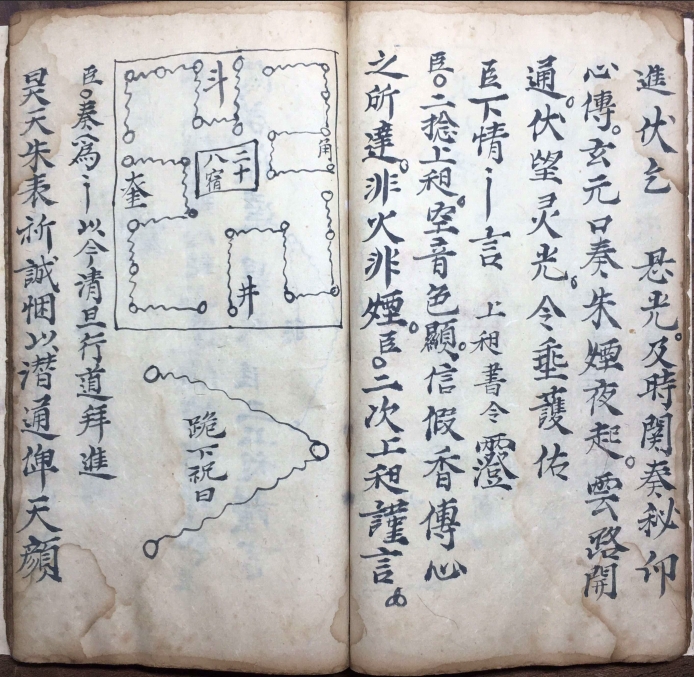 進伏乞 悬光。及時関奏秘仰
心傳。玄元口奏朱煙夜起。雲路開
通。伏望灵光。令垂護佑
臣下情〻言 上香書令
臣〇二捻上香。空音色顯。信假香傳心
之所達。非火非煙。臣〇二次上香謹言。
斗
角
二十
八宿
奎
井
跪下祝曰
臣〇奏為〻以今清旦行道拜進
昊天朱表祈誠悃以潛通俾天顏